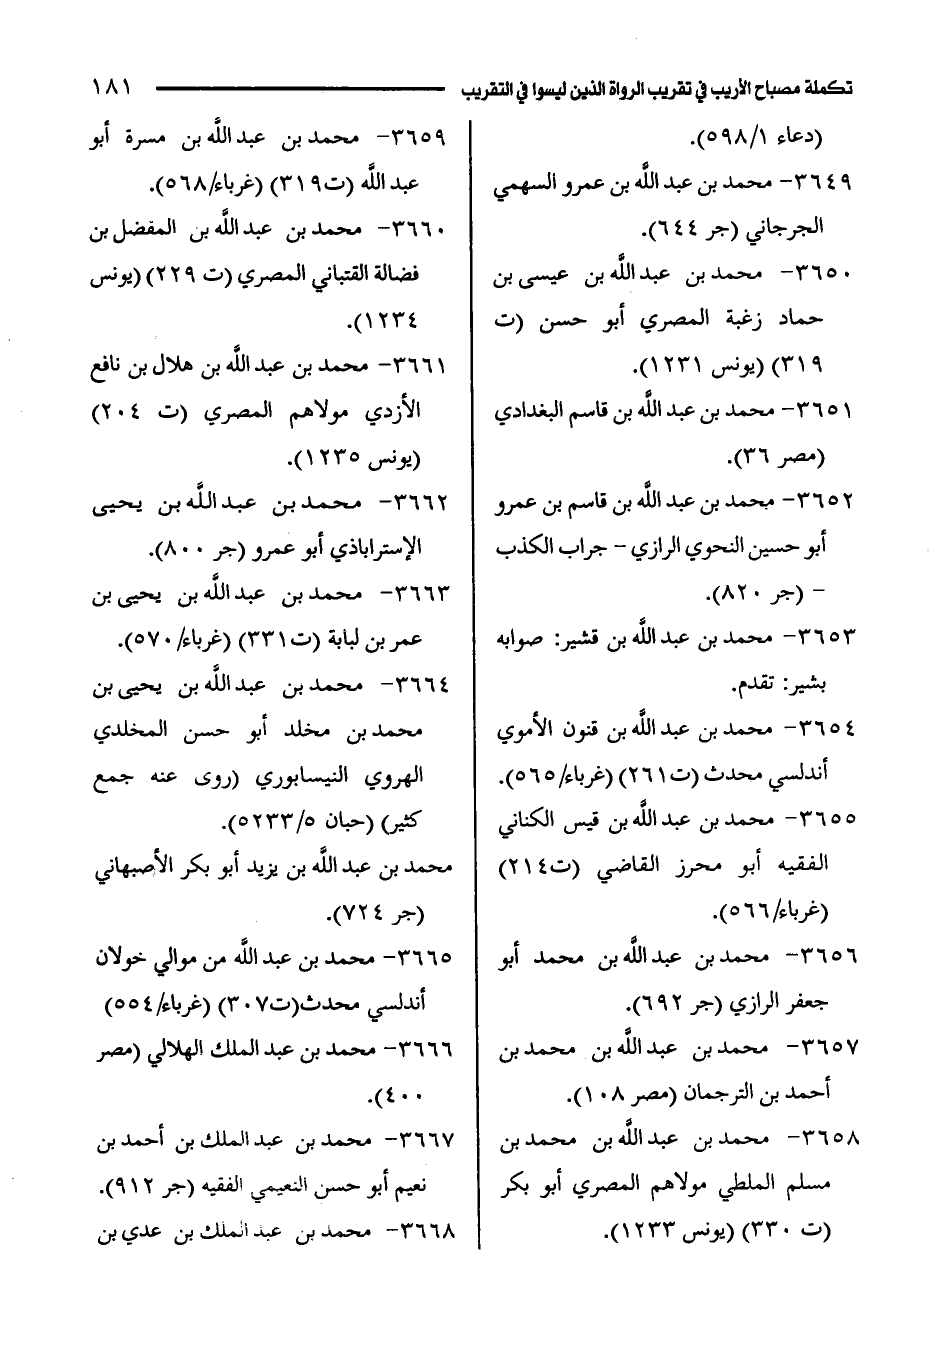 تكملة مصباح الأريب في تقريب الرواة الذين ليسوا في التقريب ١٨١
(دعاء ٥٩٨/١).
٣٦٤٩- محمد بن عبد اللَّه بن عمرو السهمي
الجرجاني (جر ٦٤٤).
٣٦٥٠- محمد بن عبد اللَّه بن عيسى بن
حماد زغبة المصري أبو حسن (ت
٣١٩) (يونس ١٢٣١).
٣٦٥١- محمد بن عبد اللَّه بن قاسم البغدادي
(مصر ٣٦).
٣٦٥٢- محمد بن عبد اللَّه بن قاسم بن عمرو
أبو حسين النحوي الرازي - جراب الكذب
- (جر ٨٢٠).
٣٦٥٣- محمد بن عبد اللَّه بن قشير: صوابه
بشير: تقدم.
٣٦٥٤- محمد بن عبد اللَّه بن قنون الأموي
أندلسي محدث (ت٢٦١) (غرباء/٥٦٥).
٣٦٥٥- محمد بن عبد اللَّه بن قيس الكناني
الفقيه أبو محرز القاضي (ت٢١٤)
(غرباء/٥٦٦).
٣٦٥٦- محمد بن عبد اللَّه بن محمد أبو
جعفر الرازي (جر ٦٩٢).
٣٦٥٧- محمد بن عبد اللَّه بن محمد بن
أحمد بن الترجمان (مصر ١٠٨).
٣٦٥٨- محمد بن عبد اللَّه بن محمد بن
مسلم الملطي مولاهم المصري أبو بكر
(ت ٣٣٠) (يونس ١٢٣٣).
٣٦٥٩- محمد بن عبد اللَّه بن مسرة أبو
عبد اللَّه (ت٣١٩) (غرباء/٥٦٨).
٣٦٦٠- محمد بن عبد اللَّه بن المفضل بن
فضالة القتباني المصري (ت ٢٢٩) (يونس
١٢٣٤).
٣٦٦١- محمد بن عبد اللَّه بن هلال بن نافع
الأزدي مولاهم المصري (ت ٢٠٤)
(يونس ١٢٣٥).
٣٦٦٢- محمد بن عبد اللَّه بن يحيى
الإستراباذي أبو عمرو (جر ٨٠٠).
٣٦٦٣- محمد بن عبد اللَّه بن يحيى بن
عمر بن لبابة (ت٣٣١) (غرباء/٥٧٠).
٣٦٦٤- محمد بن عبد اللَّه بن يحيى بن
محمد بن مخلد أبو حسن المخلدي
الهروي النيسابوري (روى عنه جمع
كثير) (حبان ٥٢٣٣/٥).
محمد بن عبد اللَّه بن يزيد أبو بكر الأصبهاني
(جر ٧٢٤).
٣٦٦٥- محمد بن عبد اللَّه من موالي خولان
أندلسي محدث(ت٣٠٧) (غرباء/٥٥٤)
٣٦٦٦- محمد بن عبد الملك الهلالي (مصر
٤٠٠).
٣٦٦٧- محمد بن عبد الملك بن أحمد بن
نعيم أبو حسن النعيمي الفقيه (جر ٩١٢).
٣٦٦٨- محمد بن عبد الملك بن عدي بن